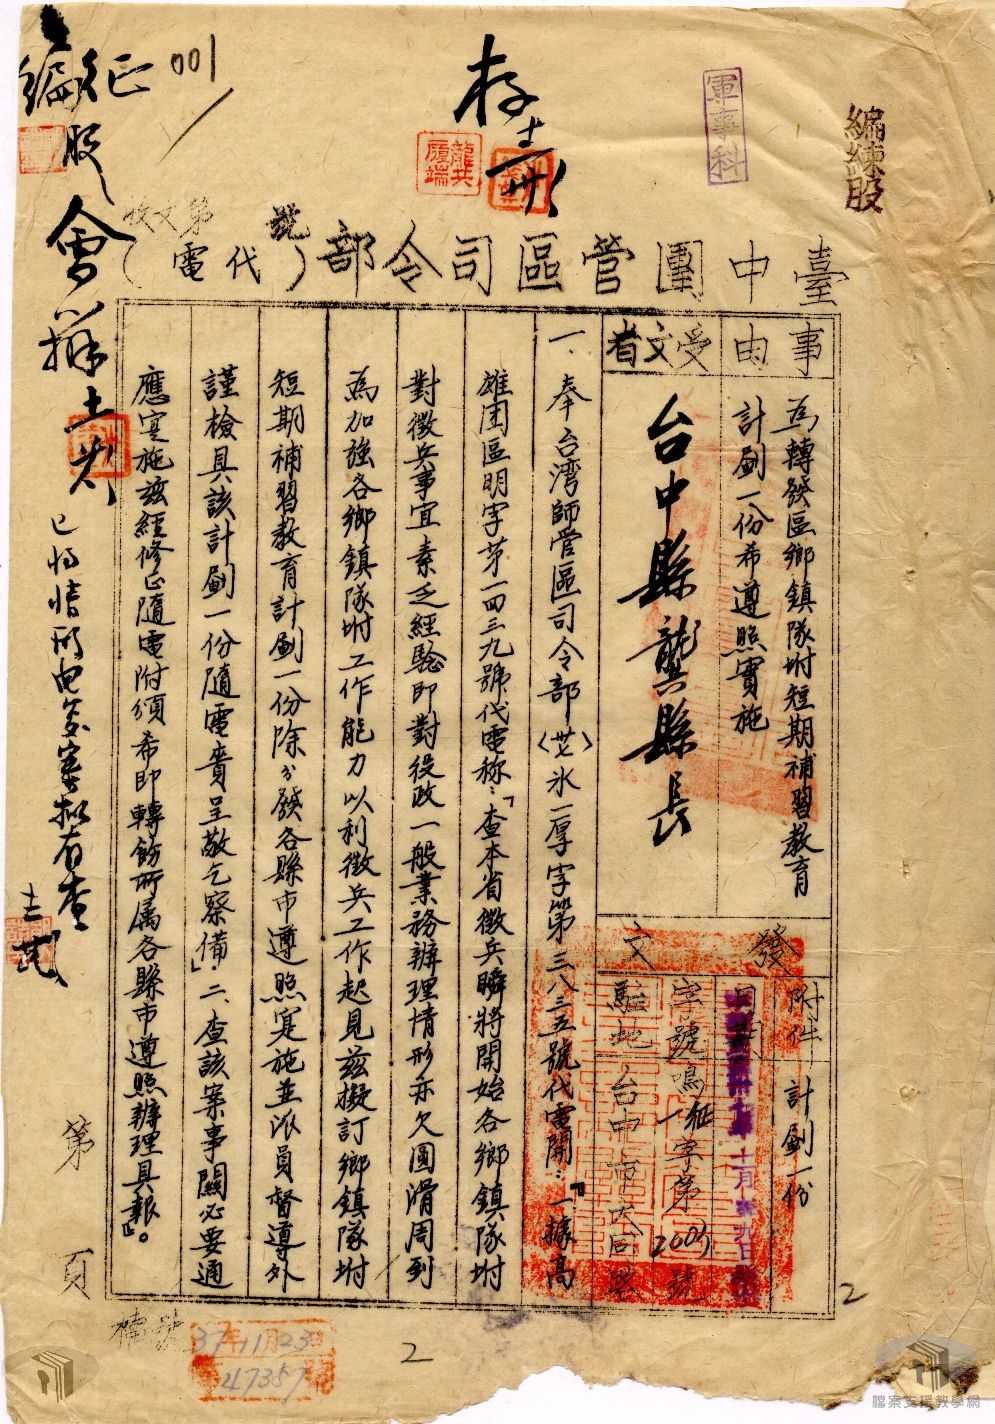 編練股
軍事科
存
龍共
履端
001
征
編
股
會辦
臺中團管區司令部(代電)
收文第 號
事由
為轉發區鄉鎮隊坿短期補習教育
計劃一份希遵照實施
受文者
台中縣龔縣長
發文
附件 計劃一份
日期 十一月 九日
字號 鳴一征字第2009號
駐地 台中市
一、奉台湾師管區司令部(芷)氷一厚字第三八三五號代電開：『一據高
雄团區明字苐一四三九號代電称：「查本省徵兵瞬將開始各鄉鎮隊坿
對徵兵事宜素乏經驗即對役政一般業務辦理情形亦欠圓滑周到
為加強各鄉鎮隊坿工作能力以利徵兵工作起見茲擬訂鄉鎮隊坿
短期補習教育計劃一份除分發各縣市遵照寔施並派員督導外
謹檢具該計劃一份隨電賫呈敬乞察備」.二、查該案事關必要通
應寔施茲經修正隨電附頒希即轉飭所属各縣市遵照辦理具報』。
第 頁
37年11月23
47357
2
2
檔案支援教學網